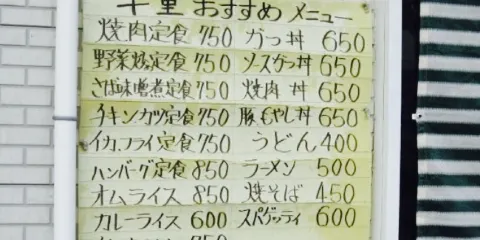 千里 おすすめ メニュー
焼肉定食 750 かつ丼 650
野菜炒定食 750 ソースかつ丼 650
さば味噌煮定食 750 焼肉丼 650
チキンカツ定食 750 豚もやし丼 650
イカフライ定食 750 うどん 400
ハンバーグ定食 850 ラーメン 500
オムライス 850 焼そば 450
カレーライス 600 スパゲッティ 600